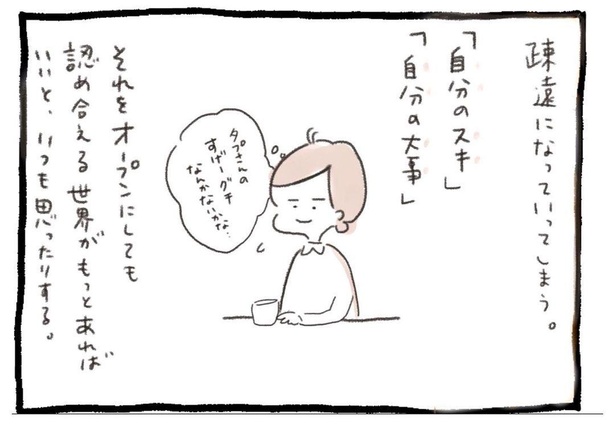 疎遠になっていってしまう。
「自分のスキ」
「自分の大事」
タプさんの
すげーグチ
なんかないかな…
それをオープンにしても
認め合える世界がもっとあれば
いいと、いつも思ったりする。